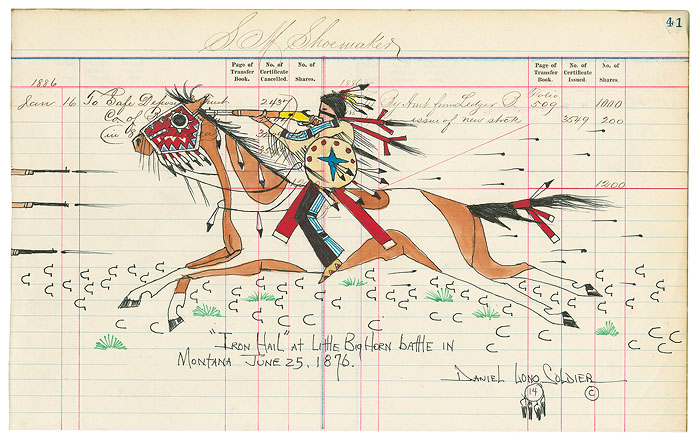 41
S. M. Shoemaker
Page of Transfer Book. No. of Certificate Cancelled. No. of Shares. Page of Transfer Book. No. of Certificate Issued. No. of Shares.
1886
Jan 16 To Safe Deposit 2437 By Amt from Ledger D. Folio 509 1000
Co of issue of new stock 3549 200
in
1200
"IRON HAIL" AT LITTLE BIG HORN BATTLE IN
MONTANA JUNE 25, 1876.
DANIEL LONG SOLDIER
14 ©